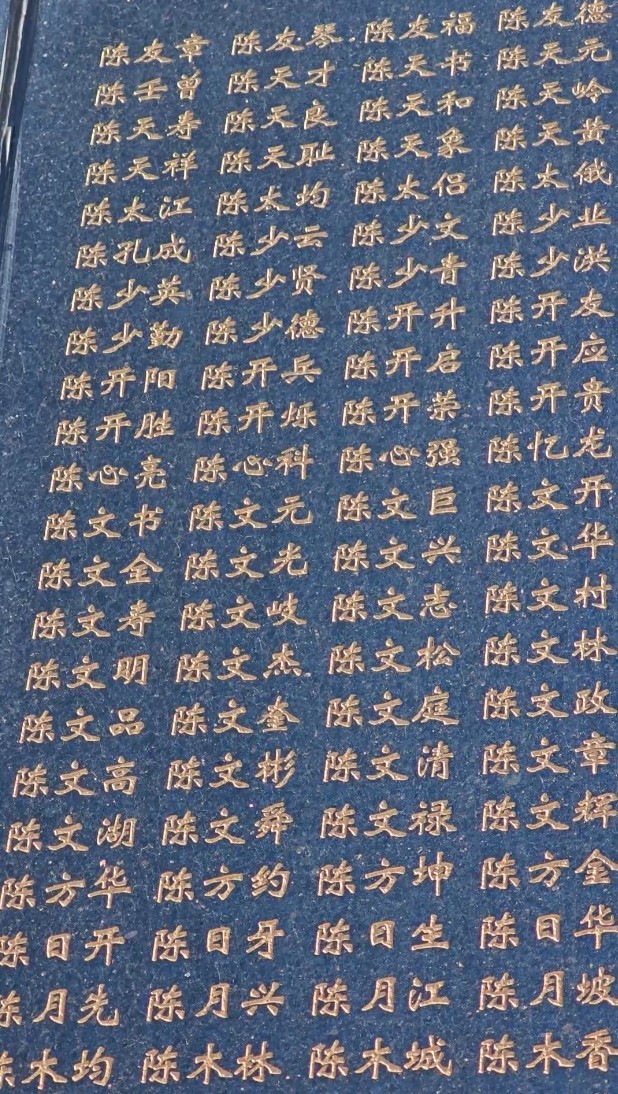 陈友章 陈友琴 陈友福 陈友德
陈壬曾 陈天才 陈天书 陈天元
陈天寿 陈天良 陈天和 陈天岭
陈天祥 陈天耻 陈天象 陈天黄
陈太江 陈太均 陈太侣 陈太俄
陈孔成 陈少云 陈少文 陈少业
陈少英 陈少贤 陈少青 陈少洪
陈少勤 陈少德 陈开升 陈开友
陈开阳 陈开兵 陈开启 陈开应
陈开胜 陈开烁 陈开荣 陈开贵
陈心亮 陈心科 陈心强 陈忆龙
陈文书 陈文元 陈文巨 陈文开
陈文全 陈文光 陈文兴 陈文华
陈文寿 陈文岐 陈文志 陈文村
陈文明 陈文杰 陈文松 陈文林
陈文品 陈文奎 陈文庭 陈文政
陈文高 陈文彬 陈文清 陈文章
陈文湖 陈文舜 陈文禄 陈文辉
陈方华 陈方约 陈方坤 陈方金
陈日开 陈日牙 陈日生 陈日华
陈月先 陈月兴 陈月江 陈月坡
陈木均 陈木林 陈木城 陈木香